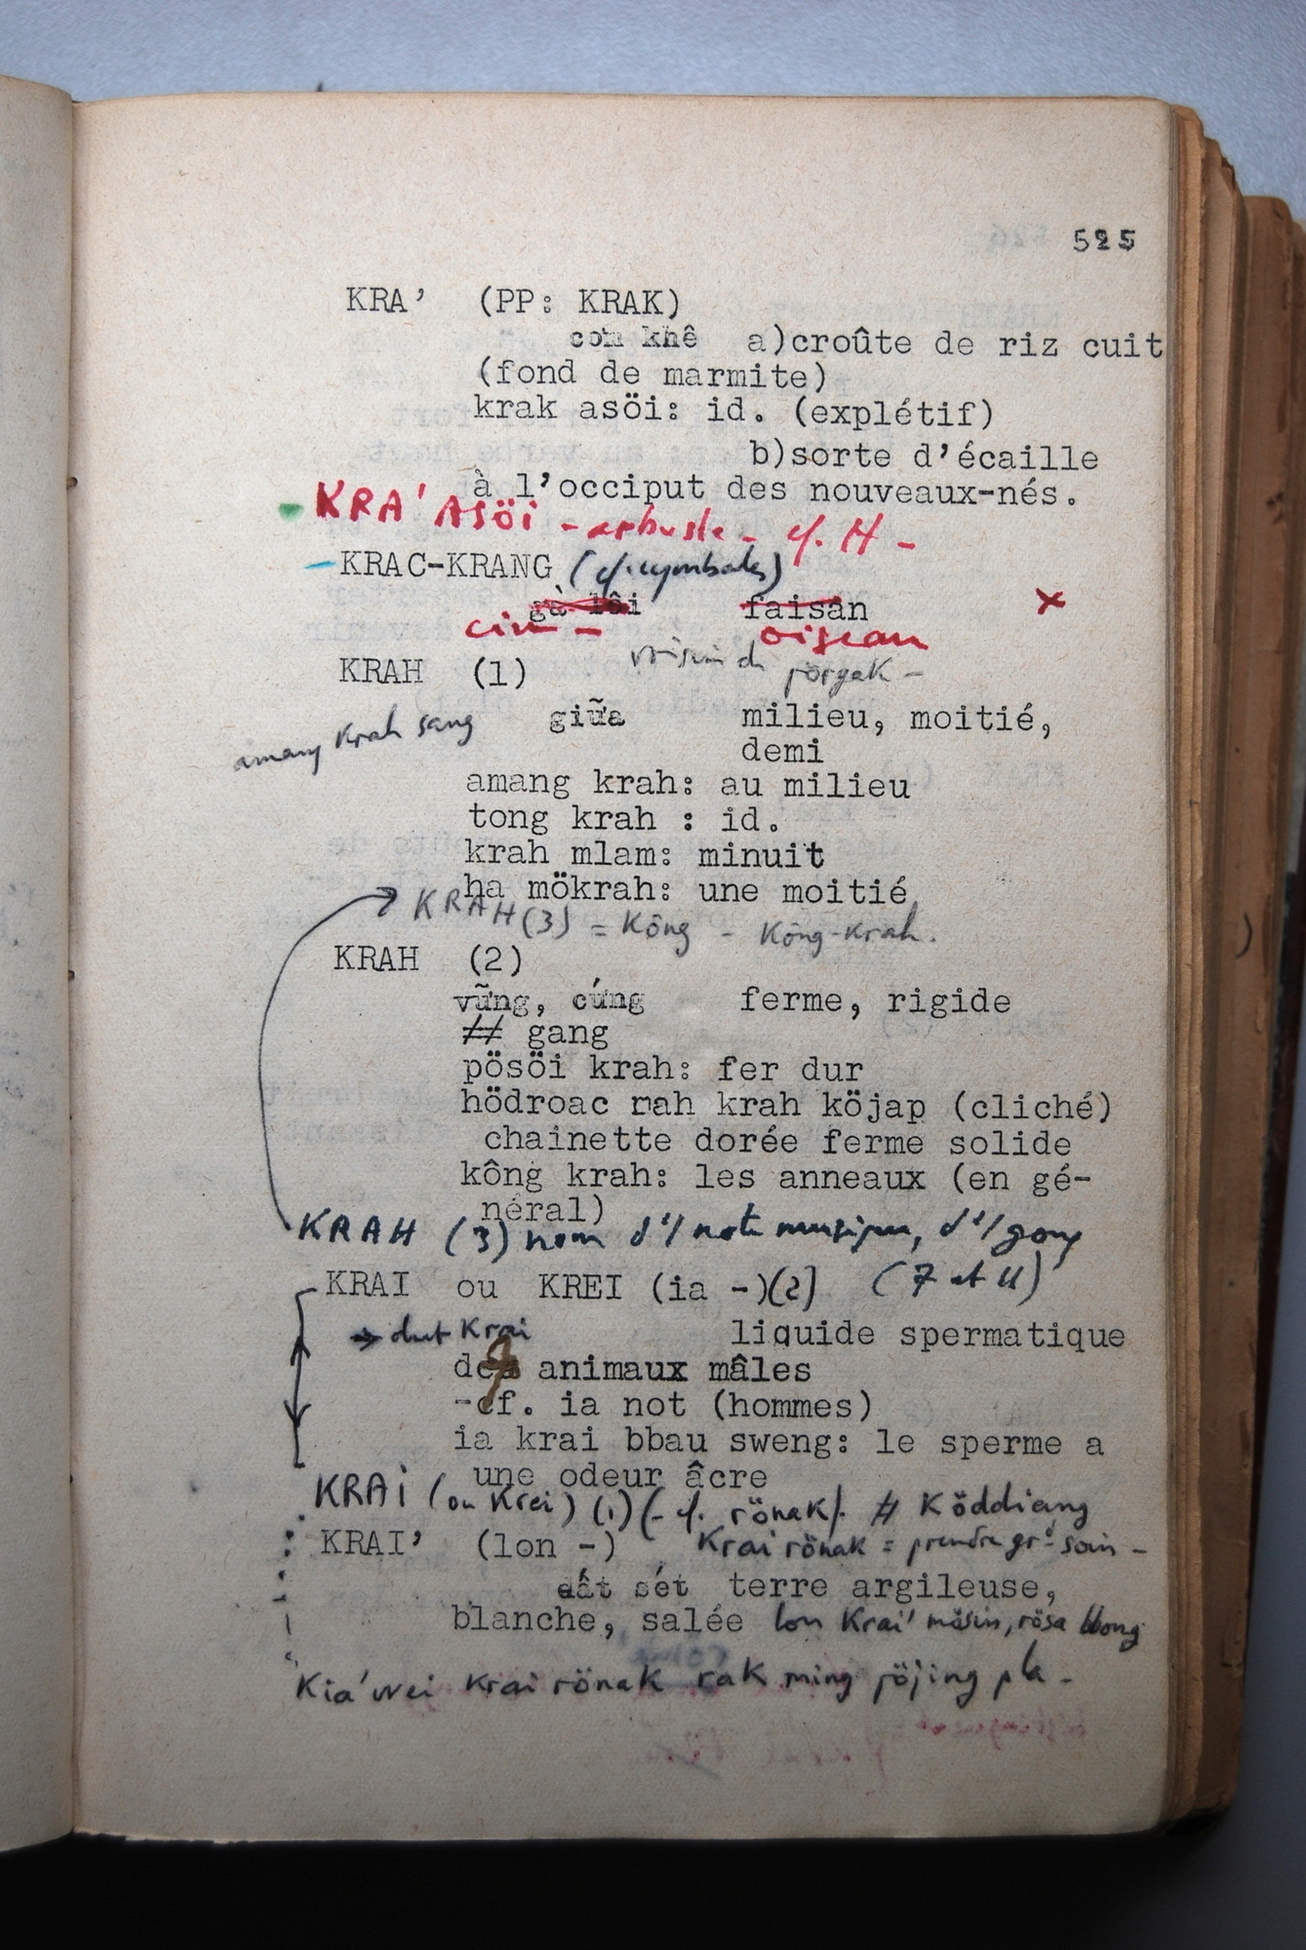 525
KRA' (PP: KRAK)
com khê a)croûte de riz cuit
(fond de marmite)
krak asöi: id. (explétif)
b)sorte d'écaille
à l'occiput des nouveaux-nés.
KRA' ASÖi - arbuste - cf. H -
-KRAC-KRANG (cf. cymbales)
gà lôi faisan x
oiseau
voisin de pörgak -
KRAH (1)
giữa milieu, moitié,
amang Krah sang
demi
amang krah: au milieu
tong krah : id.
krah mlam: minuit
ha mökrah: une moitié
KRAH (3) = Kông - Kông-Krah.
KRAH (2)
vững, cứng ferme, rigide
## gang
pösöi krah: fer dur
hödroac mah krah köjap (cliché)
chainette dorée ferme solide
kông krah: les anneaux (en gé-
néral)
KRAH (3) nom d'1 note musique, d'1 gong
(7 et 11)
KRAI ou KREI (ia -)(2)
→ dut Krai liquide spermatique
des animaux mâles
-cf. ia not (hommes)
ia krai bbau sweng: le sperme a
une odeur âcre
KRAi (ou Krei) (1) (- cf. rönak). # Köddiang
KRAI' (lon -) Krai rönak = prendre grd soin -
đất sét terre argileuse,
blanche, salée lon Krai' mösin, rösa bbong
Kia' wei Krai rönak rak ming pöjing pla -